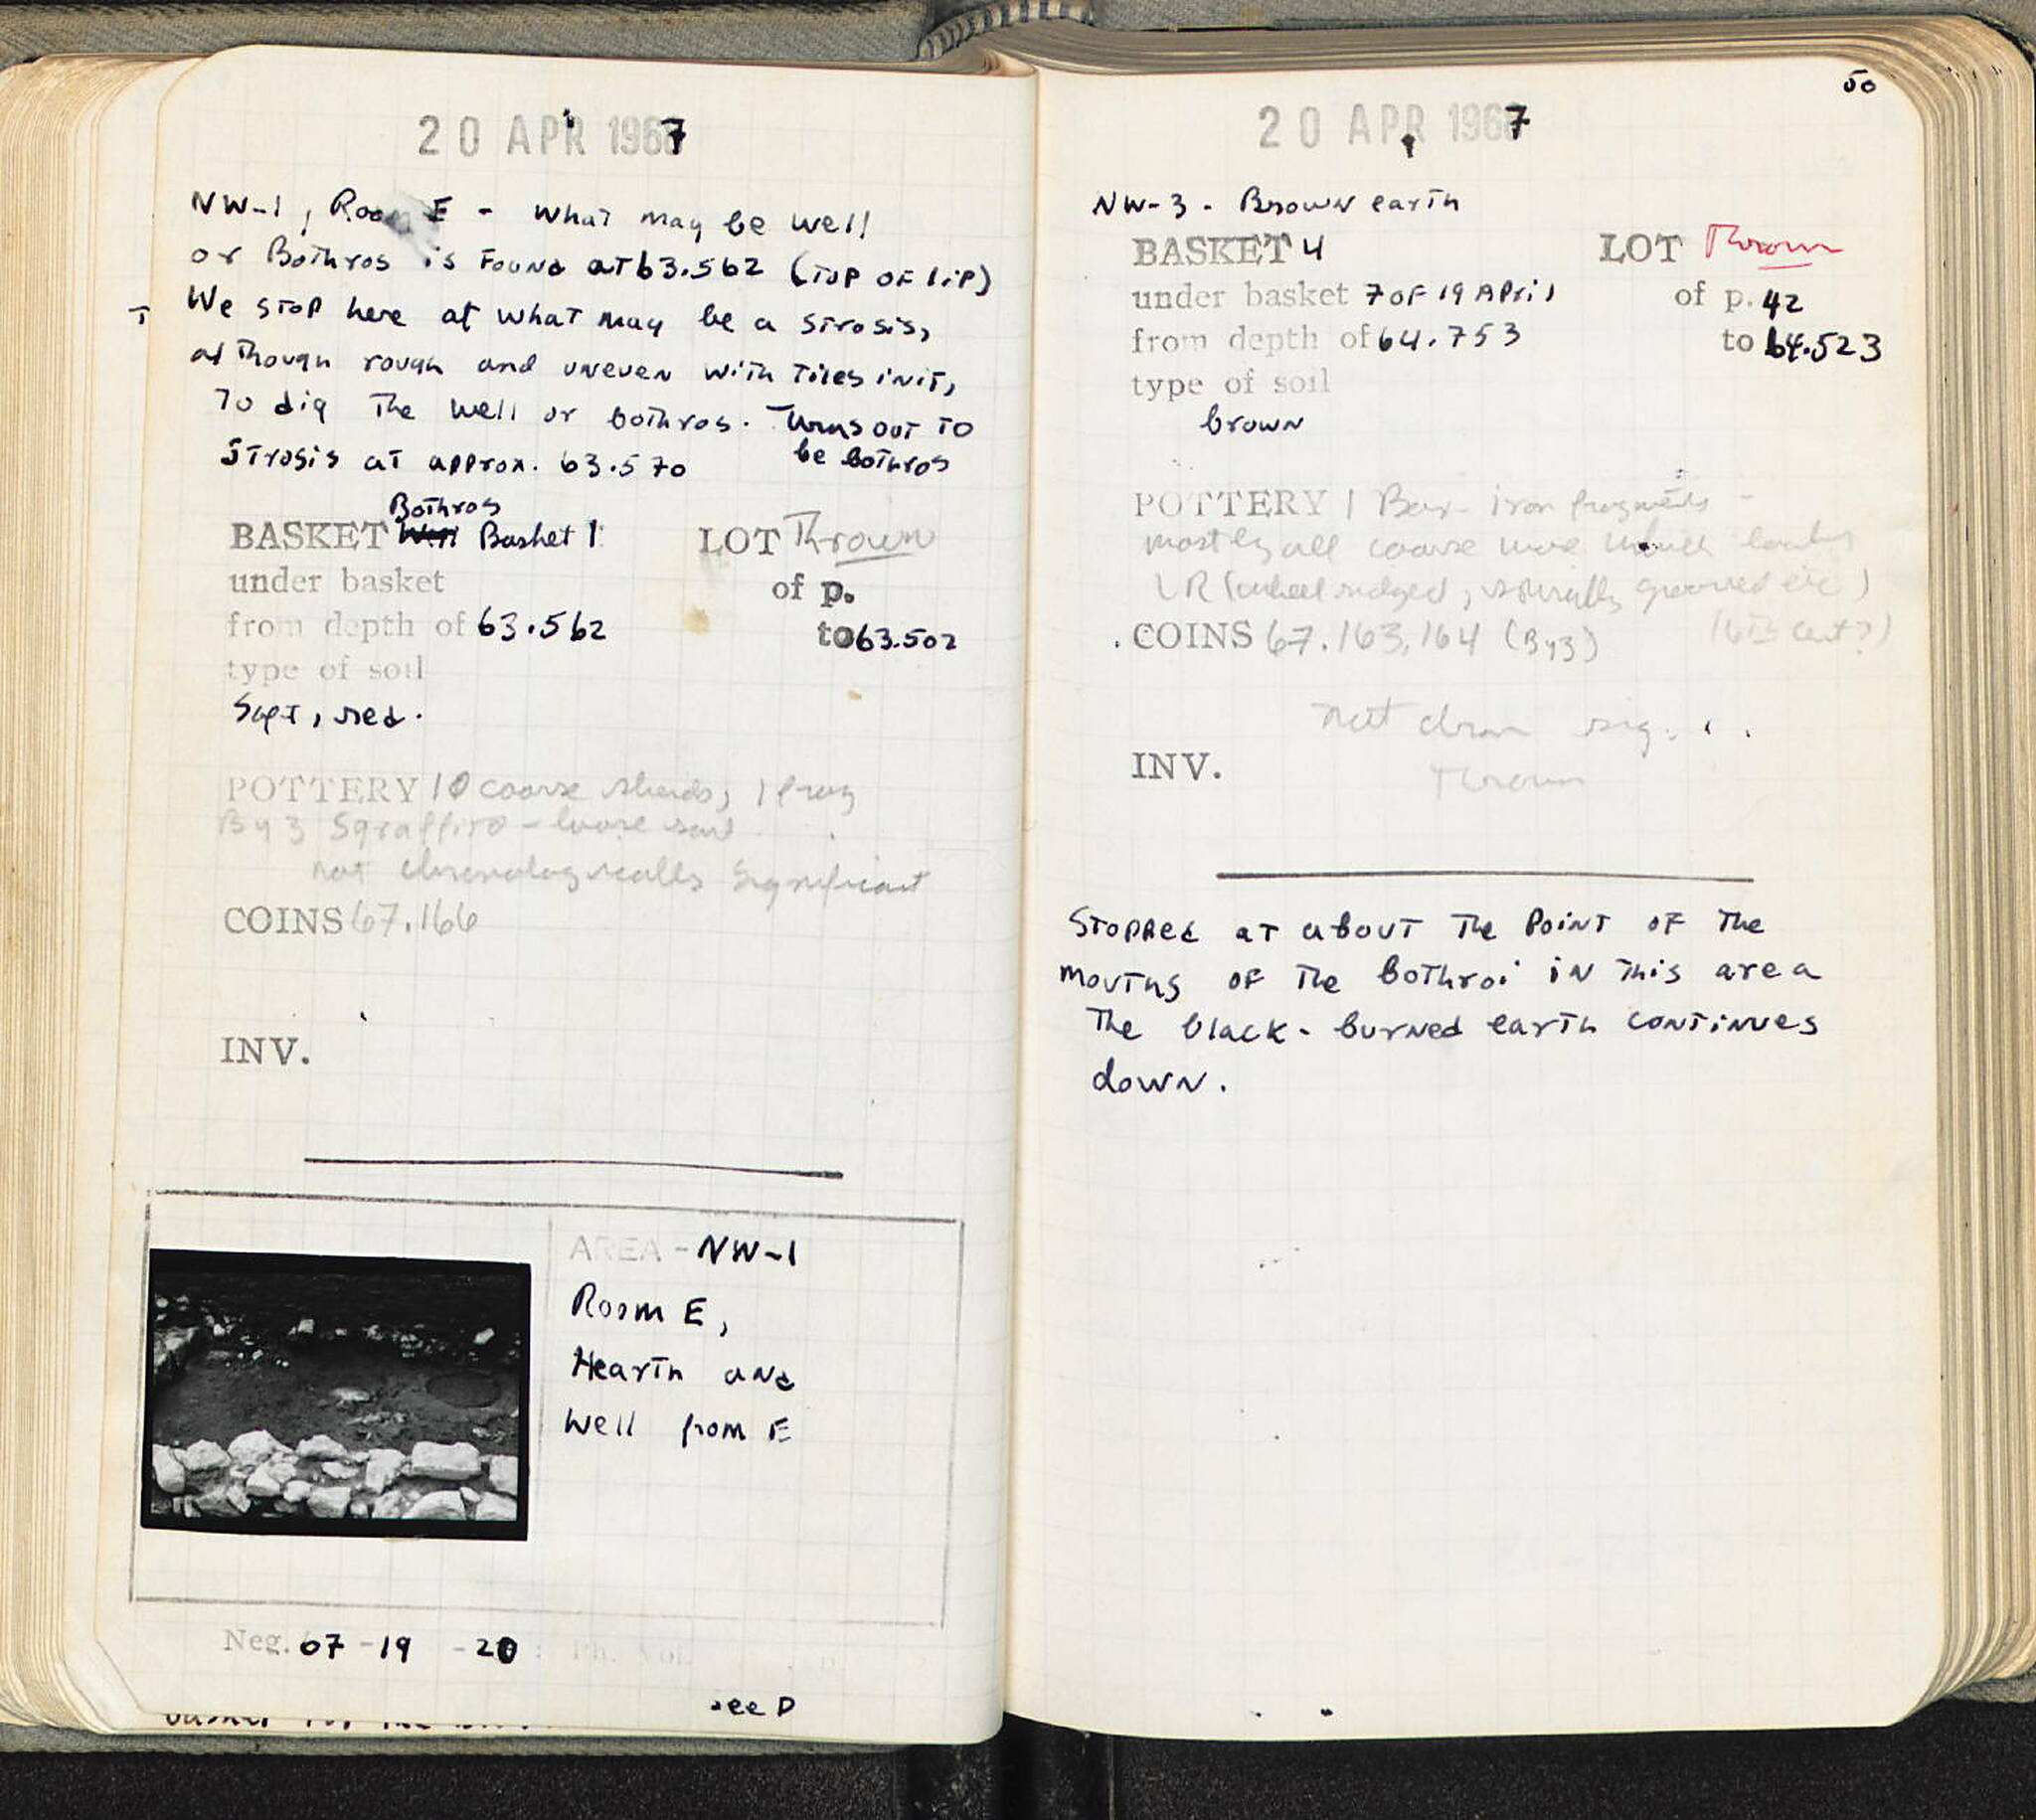 20 APR 1967
NW-1, Room E - What may be well
or Bothros is Found at 63.562 (TOP OF LIP)
We stop here at what may be a strosis,
although rough and uneven with tiles in it,
To dig The well or bothros. Turns out to
be bothros
Strosis at approx. 63.570
Bothros
BASKET Well Basket 1 LOT Thrown
under basket of p.
from depth of 63.562 to 63.502
type of soil
Soft, red.
POTTERY 10 coarse sherds, 1 frag
By 3 Sgraffito - loose soil
not chronologically significant
COINS 67.166
INV.
AREA - NW-1
Room E,
Hearth and
Well from E
Neg. 67 -19 -20 : Ph. Vol. p.
see P
50
20 APR 1967
NW-3 - Brown earth
BASKET 4 LOT Thrown
under basket 7 OF 19 April of p. 42
from depth of 64.753 to 64.523
type of soil
brown
POTTERY 1 Box - iron fragments -
mostly all coarse ware
LR (wheel ridged, spirally grooved etc)
(6th cent?)
COINS 67.163, 164 (By3)
not chron sig.
INV.
Thrown
Stopped at about the point of the
mouths of the bothroi in this area
The black-burned earth continues
down.